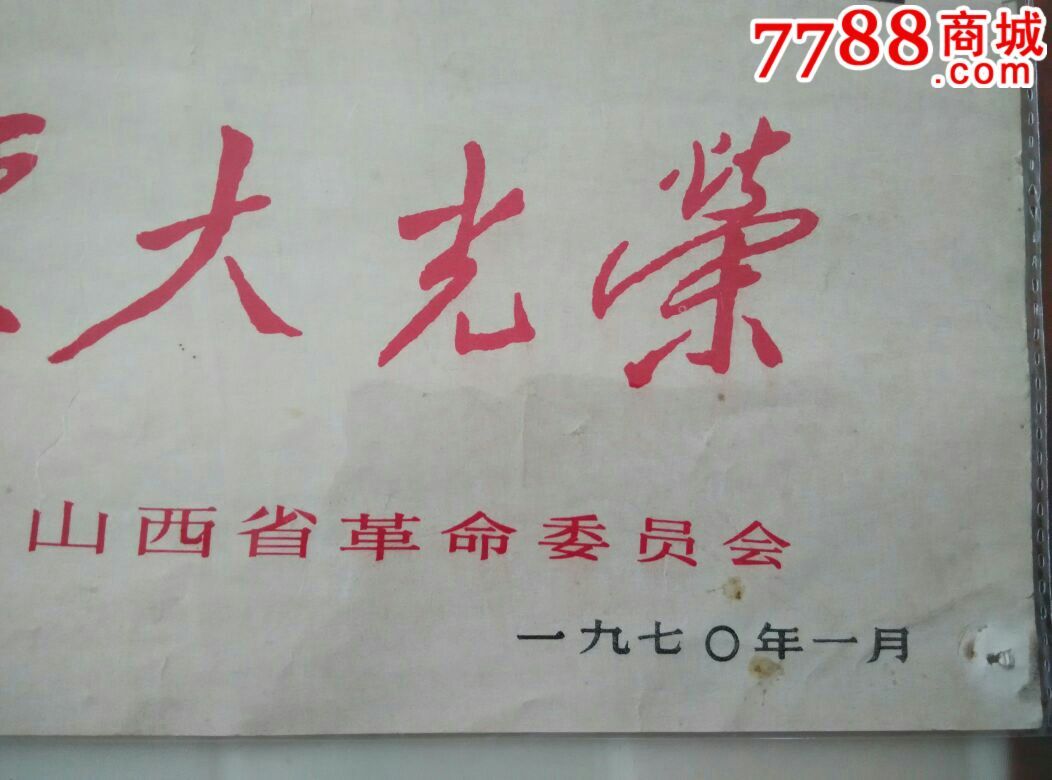 7788商城
.com
大光荣
山西省革命委员会
一九七〇年一月